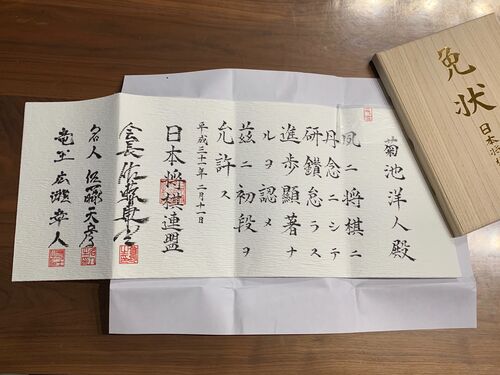 菊池洋人殿
夙ニ将棋ニ
丹念ニシテ
研鑽怠ラス
進歩顯著ナ
ルヲ認メ
茲ニ初段ヲ
允許ス
平成三十一年二月十一日
日本将棋連盟
会長佐藤康光
名人 佐藤天彦
竜王 広瀬章人
免状
日本将